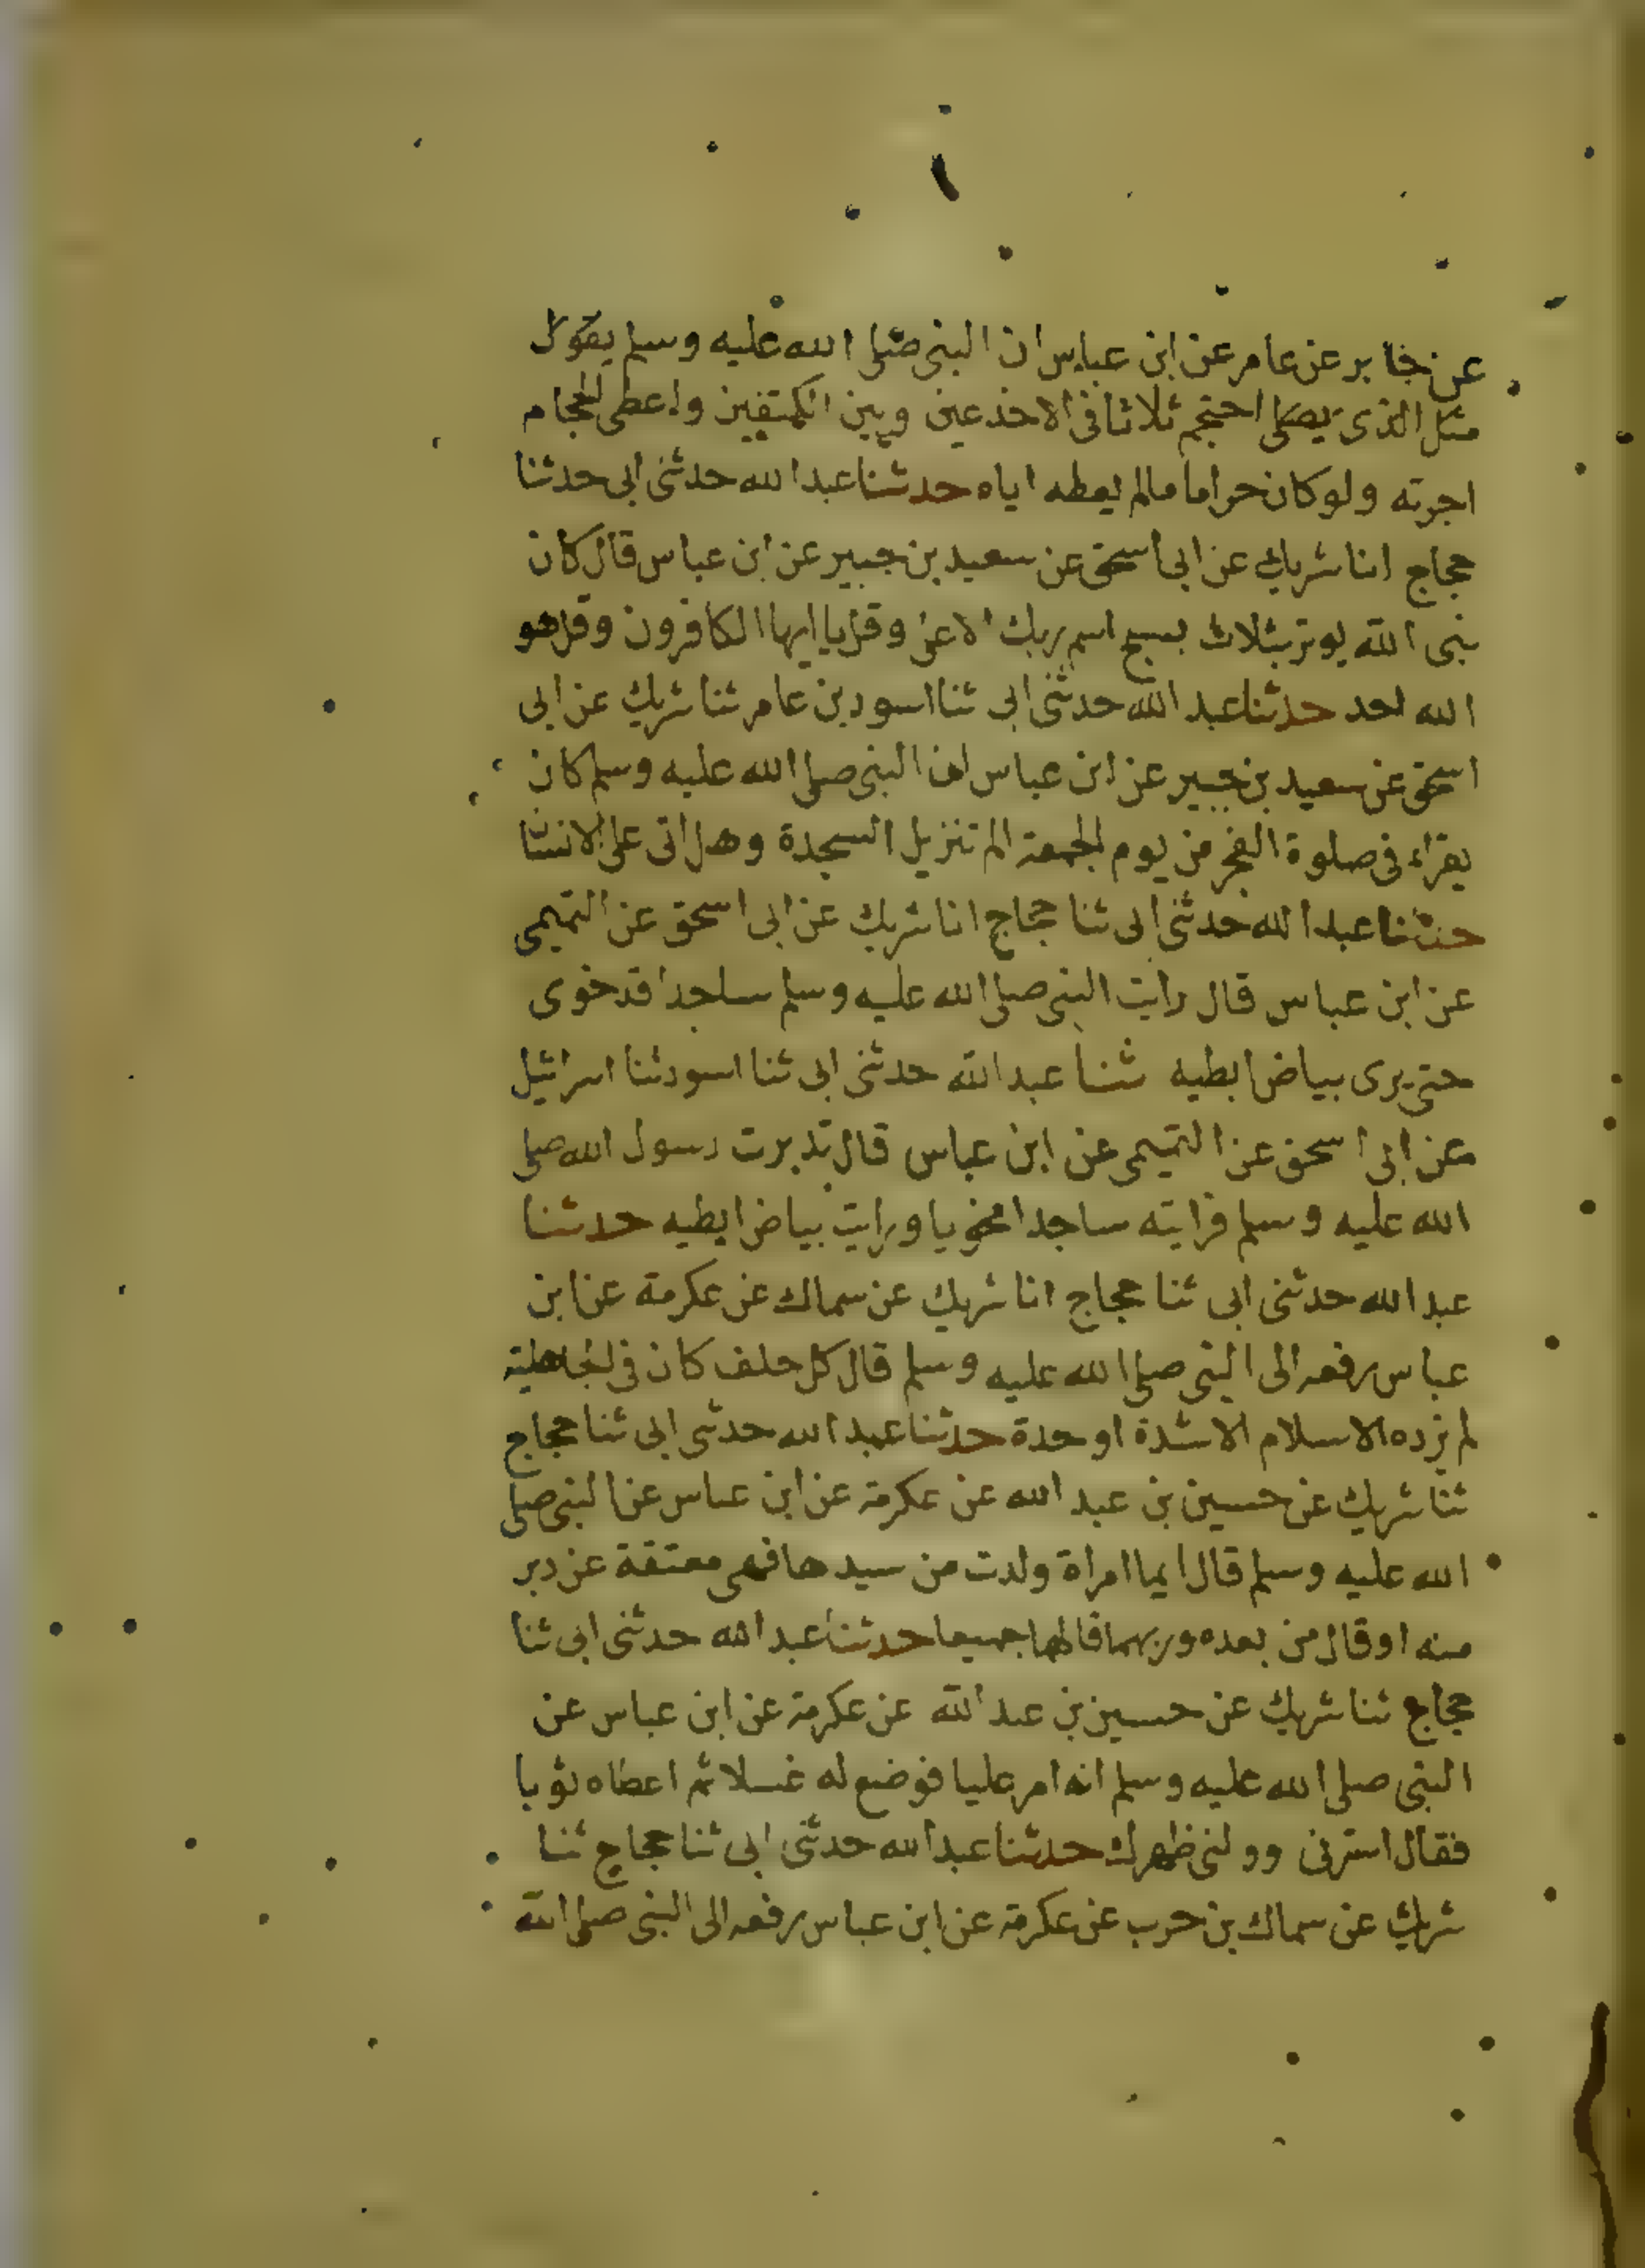 ١
عن جابر عن عامر عن ابن عباس ان النبى صلى الله عليه وسلم
احتجم ثلاثا فى الاخدعين وبين الكتفين واعطى الحجام
اجرته ولو كان حراما ما لم يعطه اياه حدثنا عبد الله حدثنى ابى حدثنا
حجاج انا شريك عن ابى اسحق عن سعيد بن جبير عن ابن عباس قال كان
نبى الله يوتر بثلاث بسبح اسم ربك الاعلى وقل يا ايها الكافرون وقل هو
الله احد حدثنا عبد الله حدثنى ابى ثنا اسود بن عامر ثنا شريك عن ابى
اسحق عن سعيد بن جبير عن ابن عباس ان النبى صلى الله عليه وسلم كان
يقراء فى صلوة الفجر من يوم الجمعة الم تنزيل السجدة وهل اتى على الانسان
حدثنا عبد الله حدثنى ابى ثنا حجاج انا شريك عن ابى اسحق عن التميمى
عن ابن عباس قال رايت النبى صلى الله عليه وسلم ساجدا قد خوى
حتى يرى بياض ابطيه ثنا عبد الله حدثنى ابى ثنا اسود ثنا اسرائيل
عن ابى اسحق عن التميمى عن ابن عباس قال تدبرت رسول الله صلى
الله عليه وسلم فرايته ساجدا مخويا ورايت بياض ابطيه حدثنا
عبد الله حدثنى ابى ثنا حجاج انا شريك عن سماك عن عكرمة عن ابن
عباس رفعه الى النبى صلى الله عليه وسلم قال كل حلف كان فى الجاهلية
لم يزده الاسلام الا شدة او حدة حدثنا عبد الله حدثنى ابى ثنا حجاج
ثنا شريك عن حسين بن عبد الله عن عكرمة عن ابن عباس عن النبى صلى
الله عليه وسلم قال ايما امراة ولدت من سيدها فهى معتقة عن دبر
منه او قال من بعده وربهما قالهما جميعا حدثنا عبد الله حدثنى ابى ثنا
حجاج ثنا شريك عن حسين بن عبد الله عن عكرمة عن ابن عباس عن
النبى صلى الله عليه وسلم انه امر عليا فوضع له غسلا ثم اعطاه ثوبا
فقال استرنى وولنى ظهرك حدثنا عبد الله حدثنى ابى ثنا حجاج ثنا
شريك عن سماك بن حرب عن عكرمة عن ابن عباس رفعه الى النبى صلى الله